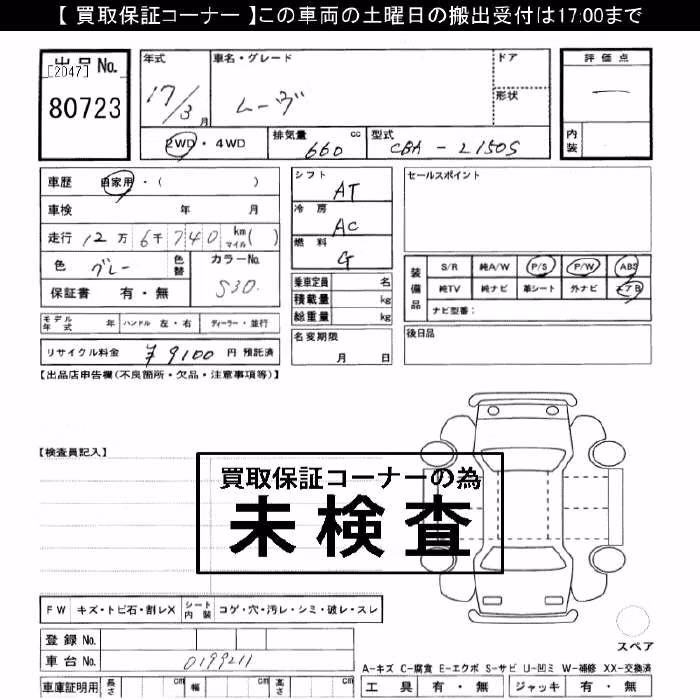 【 買取保証コーナー 】この車両の土曜日の搬出受付は17:00まで
出品No.
[2047]
80723
年式
17/3月
車名・グレード
ムーヴ
ドア
形状
評価点
—
内装
2WD・4WD
排気量 660 cc
型式 CBA-L150S
車歴 自家用・( )
車検 年 月
走行 12万6千740 km マイル ( )
色 グレー 色替
カラーNo. S30.
保証書 有・無
シフト AT
冷房 AC
燃料 G
乗車定員 名
積載量 kg
総重量 kg
セールスポイント
装備品
S/R 純A/W P/S P/W ABS
純TV 純ナビ 革シート 外ナビ エアB
ナビ型番:
モデル年式 年 ハンドル 左・右 ディーラー・並行
名変期限 月 日
後日品
リサイクル料金 ¥9100 円 預託済
【出品店申告欄(不良箇所・欠品・注意事項等)】
【検査員記入】
買取保証コーナーの為
未検査
FW キズ・トビ石・割レX シート内装 コゲ・穴・汚レ・シミ・破レ・スレ
登録No.
車台No. 0199211
車庫証明用 長さ cm 幅 cm 高さ cm
スペア
A-キズ C-腐食 E-エクボ S-サビ U-凹ミ W-補修 XX-交換済
工具 有・無 ジャッキ 有・無